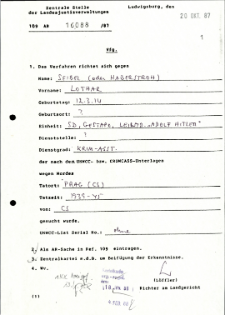 Zentrale Stelle
der Landesjustizverwaltungen
Ludwigsburg, den
20 OKT. 87
109 AR 16088 /87
1
Vfg.
1. Das Verfahren richtet sich gegen
Name: SEIBEL (oder HABERSTROH)
Vorname: LOTHAR
Geburtstag: 12.3.14
Geburtsort: ?
Einheit: SD, GESTAPO, LEIBSD. "ADOLF HITLER"
Dienststelle: ?
Dienstgrad: KRIM-ASST.
der nach den UNWCC- bzw. CROWCASS-Unterlagen
wegen Mordes
Tatort: PRAG (CS)
Tatzeit: 1939-45
von: CS
gesucht wurde.
UNWCC-List Serial No.: ohne
2. Als AR-Sache in Ref. 109 eintragen.
3. Zentralkartei z.d.B. um Beifügung der Erkenntnisse.
4. Wv.
(Löffler)
Richter am Landgericht